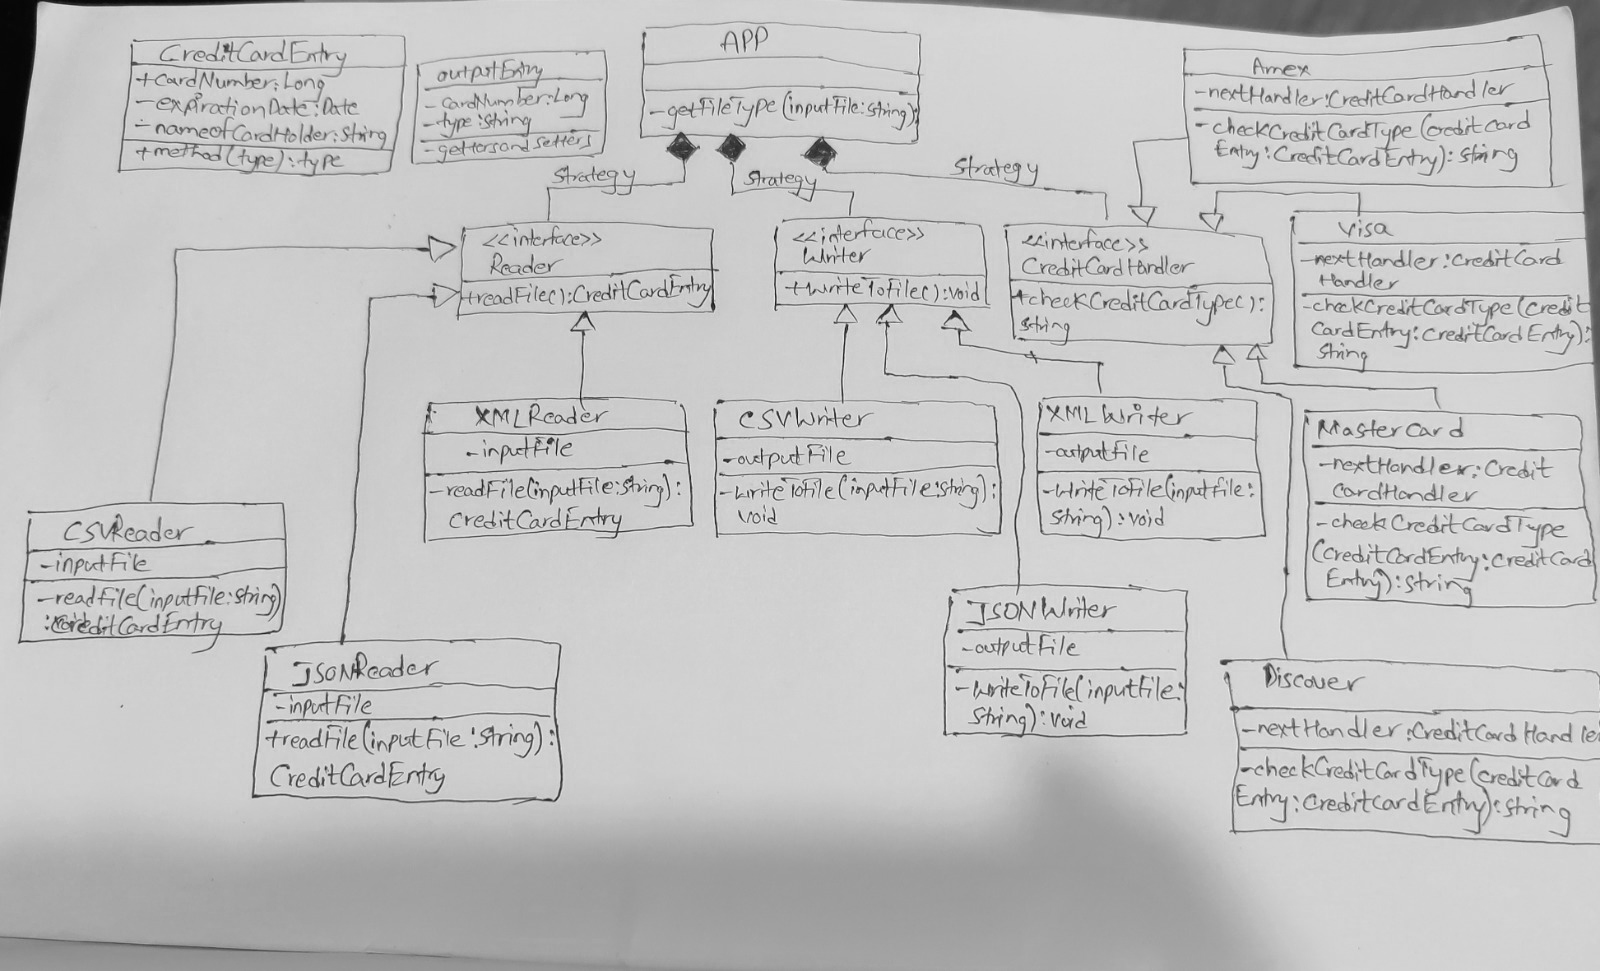 CreditCardEntry
+cardNumber:Long
-expirationDate:Date
-nameofCardHolder:String
+method(type):type
outputEntry
-cardNumber:Long
-type:String
-gettersand setters
APP
-getFileType(inputFile:string)
Strategy
Strategy
Strategy
Amex
-nextHandler:CreditCardHandler
-checkCreditCardType(credit card
Entry:CreditCardEntry):string
<<interface>>
Reader
+readFile():CreditCardEntry
<<interface>>
Writer
+WriteToFile():void
<<interface>>
CreditCardHandler
+checkCreditCardType():
string
Visa
-nextHandler:CreditCard
Handler
-checkCreditCardType(credit
CardEntry:CreditCardEntry):
string
XMLReader
-inputFile
-readFile(inputFile:string):
CreditCardEntry
CSVWriter
-outputFile
-WriteToFile(inputFile:string):
void
XMLWriter
-outputFile
-WriteToFile(inputFile:
string):void
MasterCard
-nextHandler:Credit
CardHandler
-checkCreditCardType
(CreditCardEntry:CreditCard
Entry):string
CSVReader
-inputFile
-readFile(inputFile:string)
:CreditCardEntry
JSONReader
-inputFile
+readFile(inputFile:string):
CreditCardEntry
JSONWriter
-outputFile
-WriteToFile(inputFile:
String):void
Discover
-nextHandler:CreditCardHandle
-checkCreditCardType(creditCard
Entry:CreditCardEntry):string